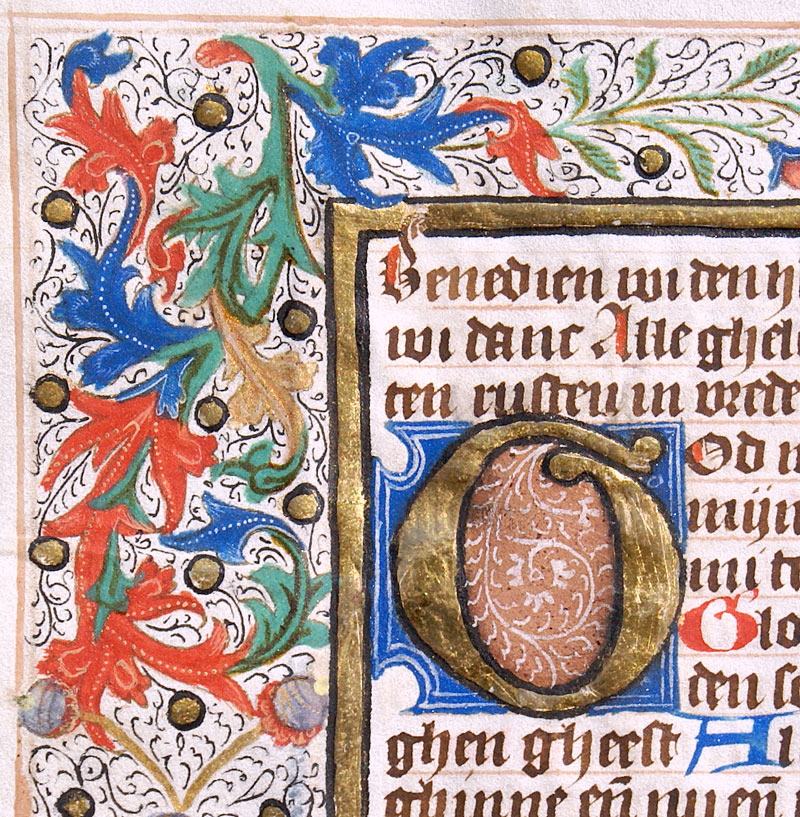 Benedien wi den h
wi danc Alle ghel
ten rusten in vrede
God
mijn
mi
Glo
den
ghen gheest Al
ghinne en̄ nu en̄